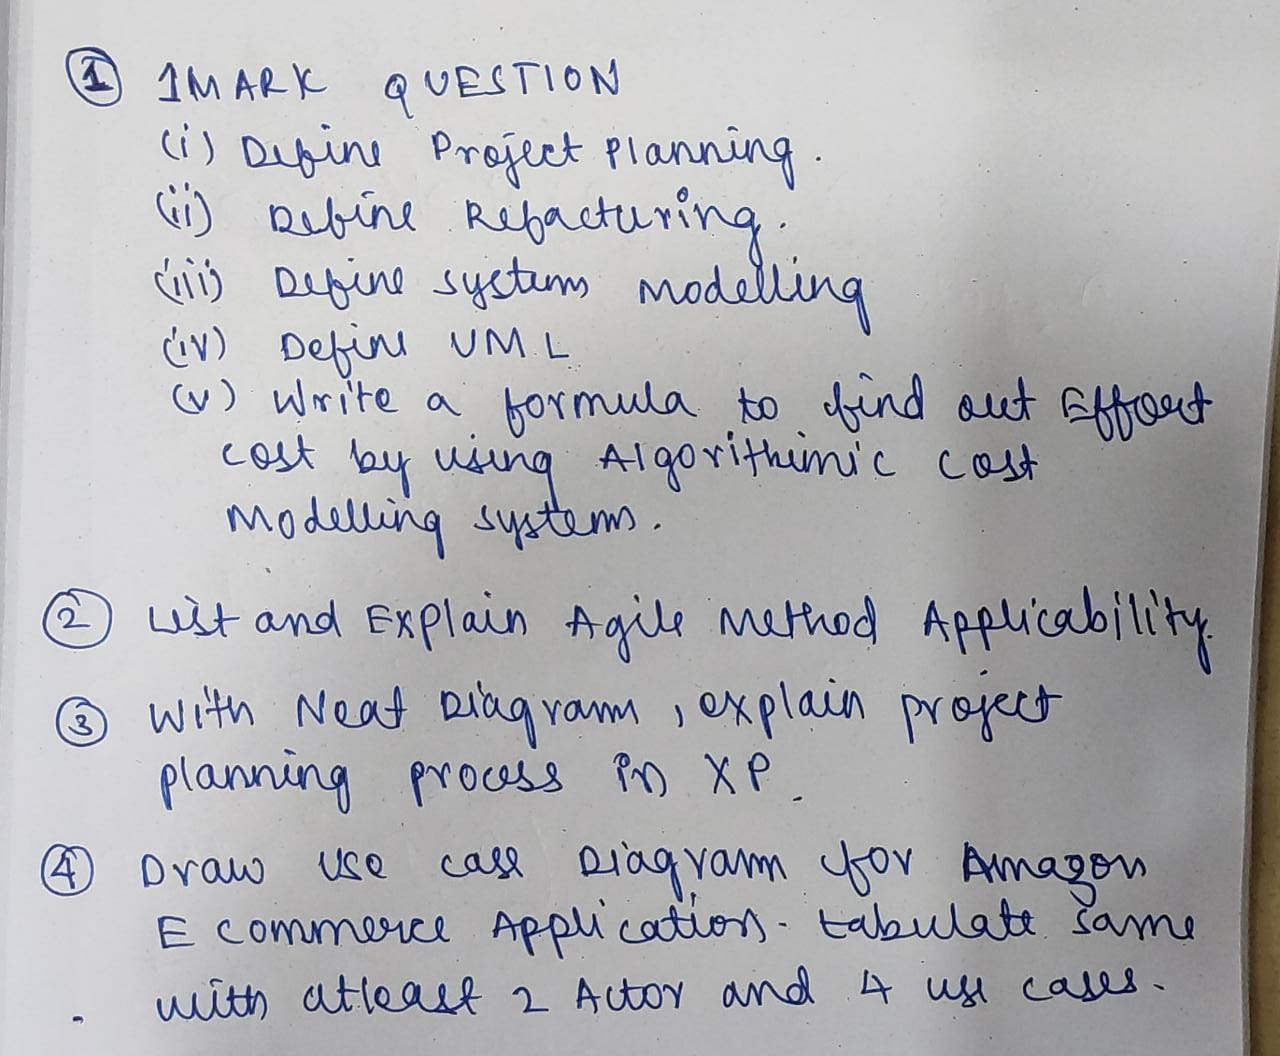 ① 1MARK QUESTION
(i) Define Project planning.
(ii) Define Refacturing.
(iii) Define system modelling
(iv) Define UML
(v) Write a formula to find out Effort
cost by using Algorithimic cost
Modelling system.
② List and Explain Agile Method Applicability.
③ With Neat Diagram, explain project
planning process in XP.
④ Draw Use case Diagram for Amazon
E commerce Application. tabulate same
with atleast 2 Actor and 4 use cases.